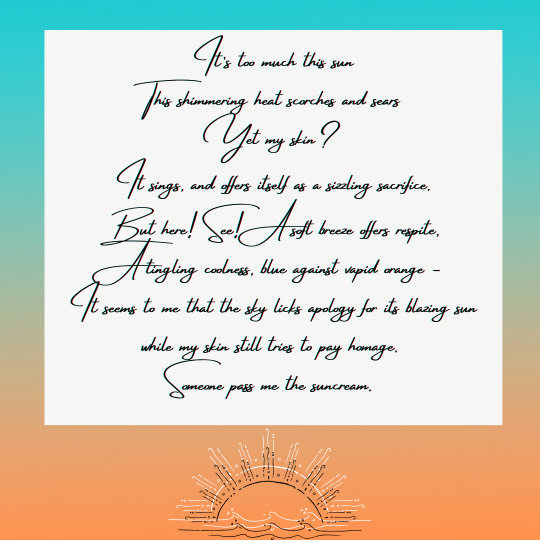 It's too much this sun
This shimmering heat scorches and sears
Yet my skin?
It sings, and offers itself as a sizzling sacrifice.
But here! See! A soft breeze offers respite,
A tingling coolness, blue against vapid orange –
It seems to me that the sky licks apology for its blazing sun
while my skin still tries to pay homage.
Someone pass me the suncream.